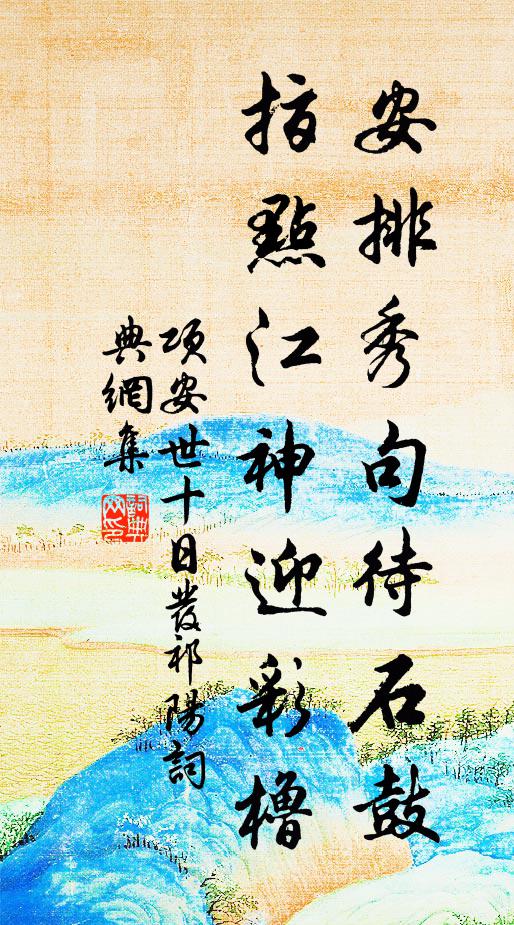 安排秀句待石鼓
指點江神迎彩櫓
項安世十日發祁陽詞
典網集